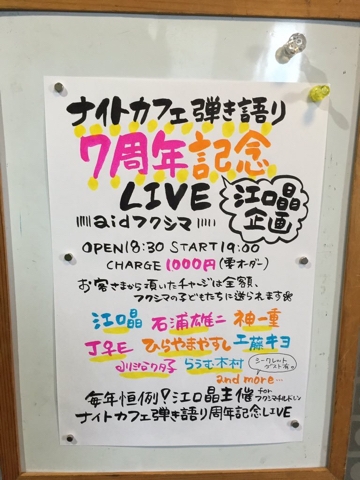 ナイトカフェ弾き語り
7周年記念
LIVE
江口晶
企画
aidフクシマ
OPEN18:30 START19:00
CHARGE 1000円(要オーダー)
お客さまから頂いたチャージは全額、
フクシマの子どもたちに送られます
江口晶 石浦雄二 神一重
J&E ひらやまやすし 工藤キヨ
らうむ木村
シークレット
ゲスト有り
and more…
毎年恒例!江口晶主催 for
フクシマチルドレン
ナイトカフェ弾き語り周年記念LIVE